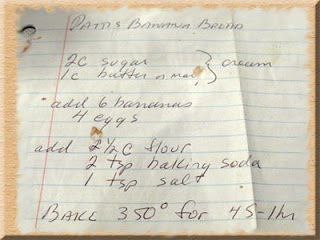 Patti's Banana Bread
2c sugar
1c butter or mar, } cream
add 6 bananas
4 eggs
add 2 1/2 c flour
2 tsp baking soda
1 tsp salt
BAKE 350° for 45-1hr